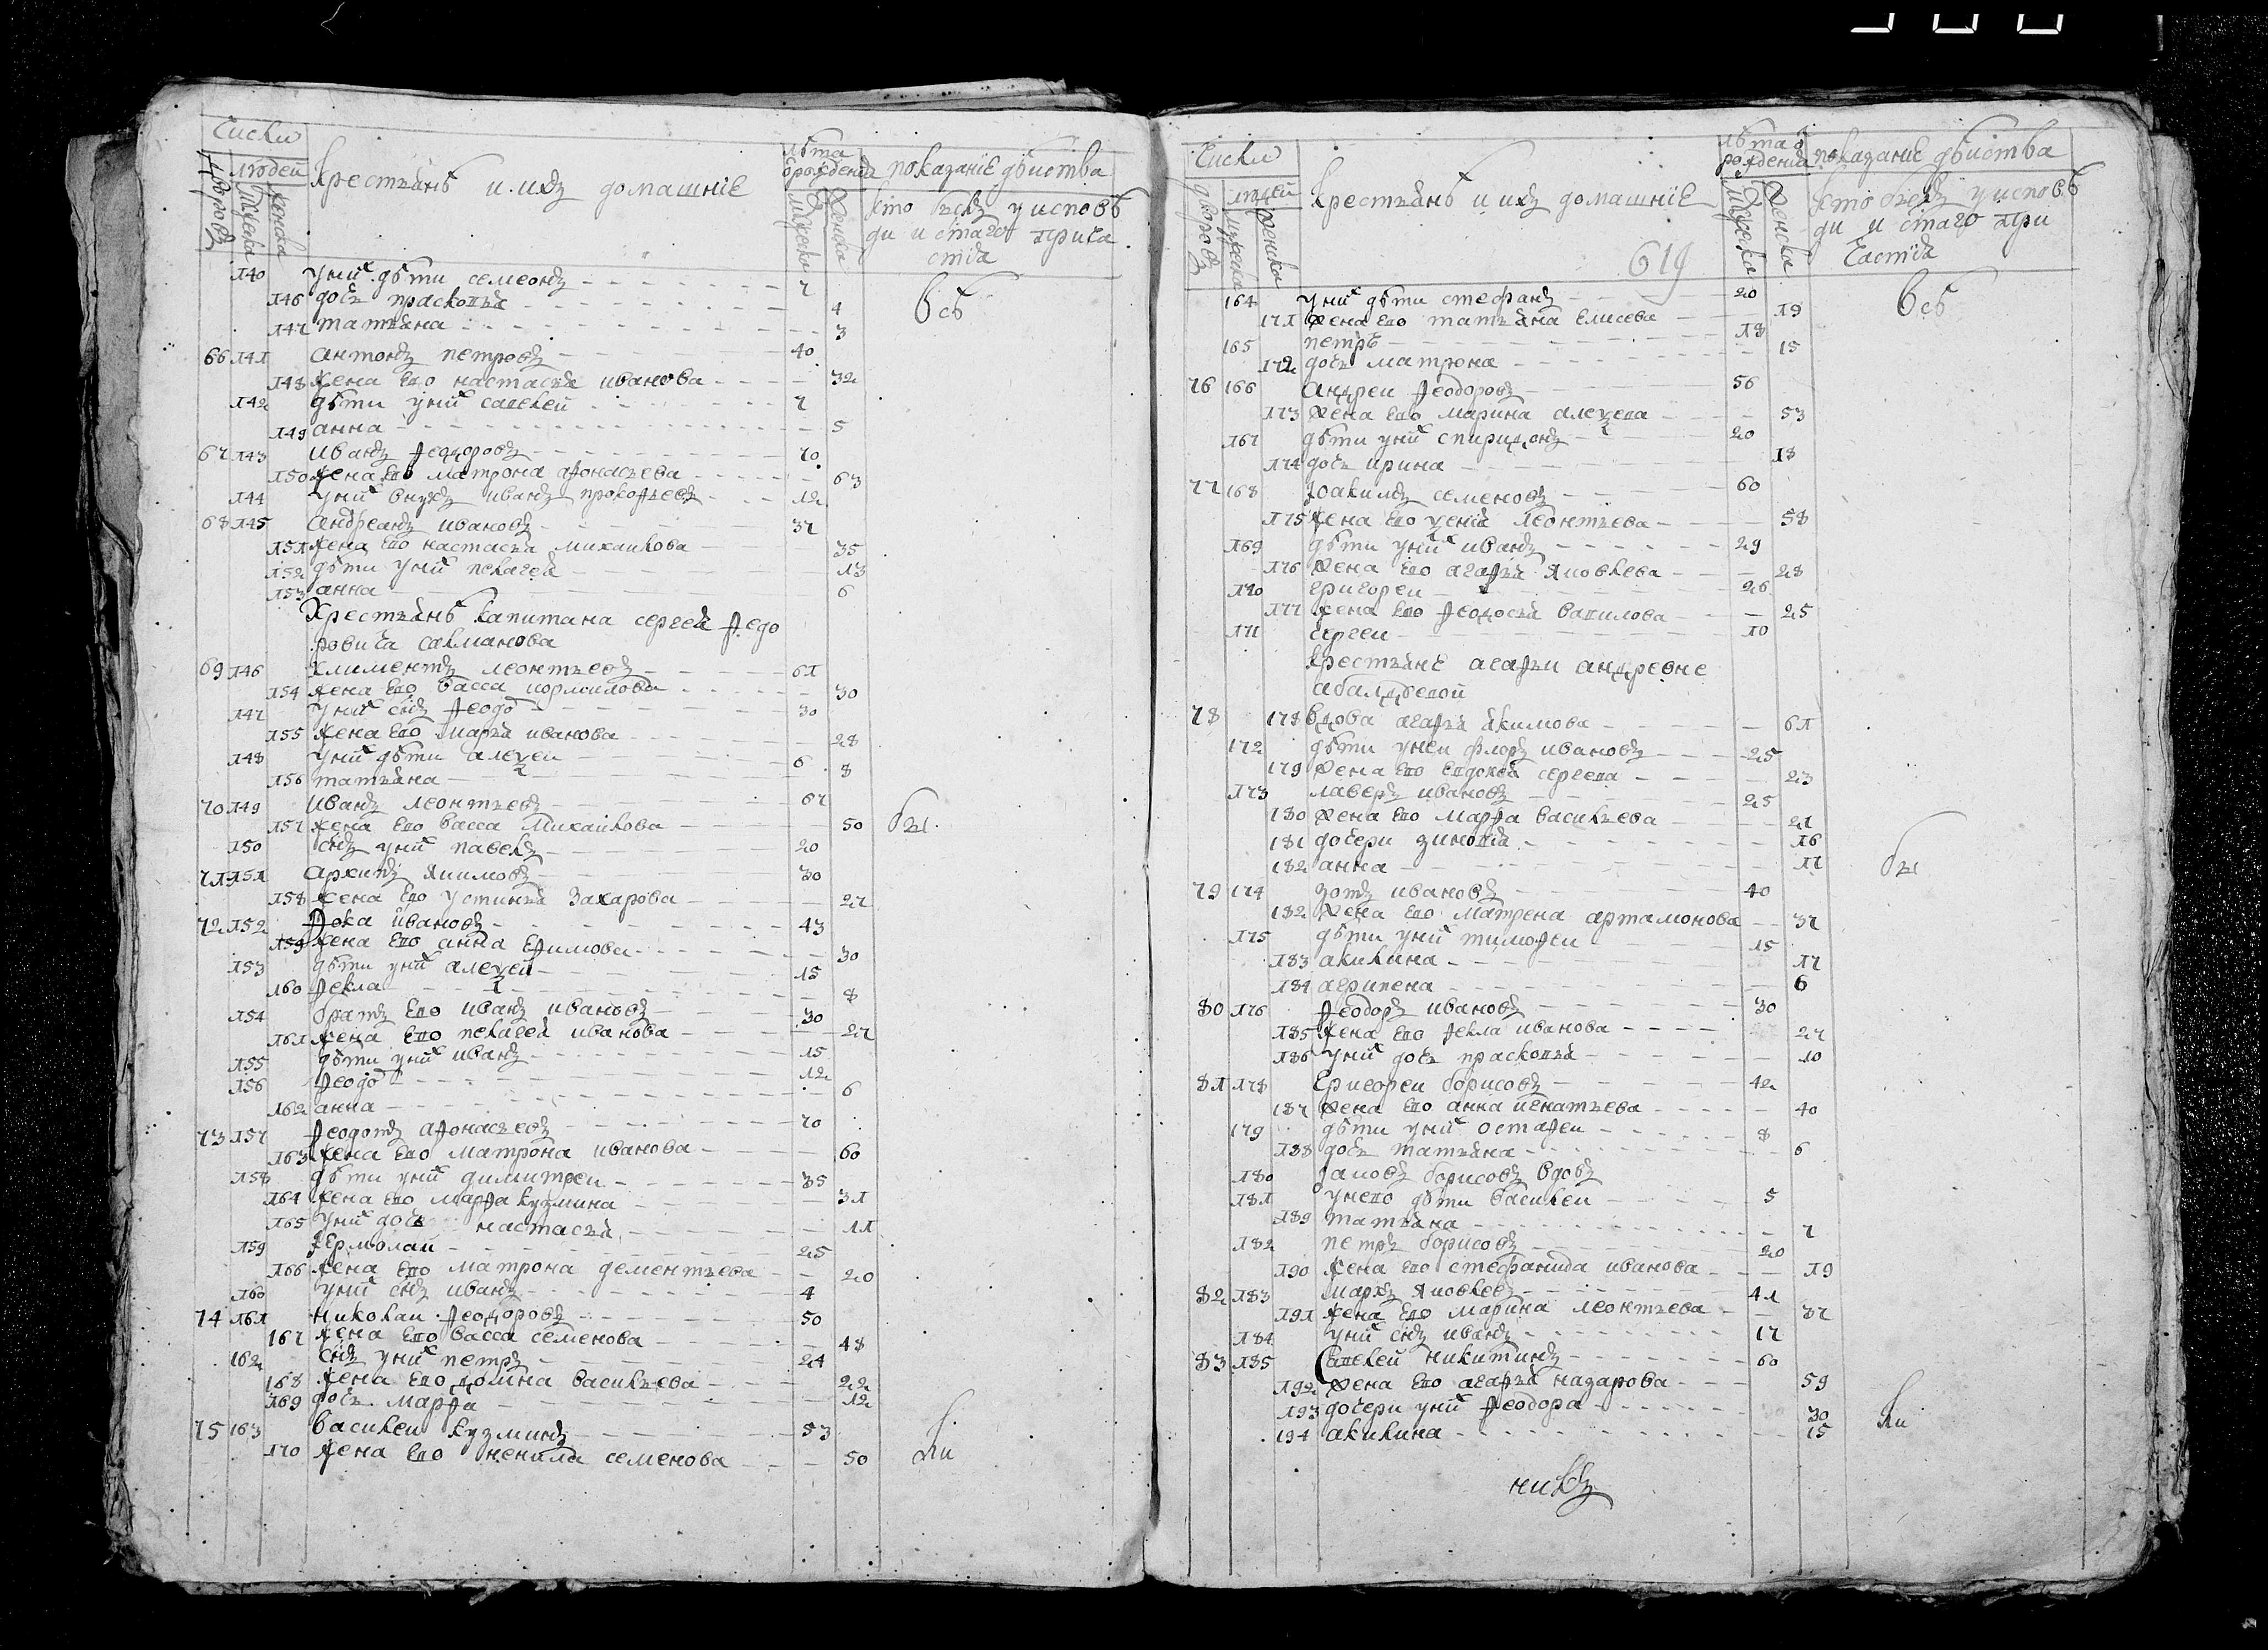 Числи
дворовъ людей мужеска женска
Крестьянѣ и ихъ домашнїе
лѣта
ѿ рожденїѧ мужеска женска
показанїе дѣиства
кто былъ у исповѣ
ди и с̃таго прича
стїѧ
140 у них дѣти семеонъ 7
146 дочь прасковьѧ 4
147 татьѧна 3
всѣ
66 141 антонъ петровъ 40
148 жена ево настасьѧ иванова 32
142 дѣти у них савелей 7
149 анна 5
67 143 иванъ Ѳеодоровъ 70
150 жена ево матрона аѲонасьева 63
144 у них внукъ иванъ прокоѲьевъ 12
68 145 андреѧнъ ивановъ 37
151 жена ево настасьѧ михаилова 35
152 дѣти у них пелагеѧ 13
153 анна 6
Крестьянѣ капитана сергеѧ Ѳедо
ровича салманова
69 146 климентъ леонтьевъ 61
154 жена ево васса кормилова 30
147 у них с̃нъ Ѳеодо 30
155 жена ево марьѧ иванова 28
148 у них дѣти алеѯеи 6
156 татьѧна 8
70 149 иванъ леонтьевъ 67
157 жена ево васса михаилова 50
бы
150 с̃нъ у них павелъ 20
71 151 архипъ Якимовъ 30
158 жена ево устиньѧ захарова 27
72 152 Ѳока ивановъ 43
159 жена ево анна еѲимова 30
153 дѣти у них алеѯеи 15
160 Ѳекла 8
154 братъ ево иванъ ивановъ 30
161 жена ево пелагеѧ иванова 27
155 дѣти у них иванъ 15
156 Ѳеодо 12
162 анна 6
73 157 Ѳеодотъ аѲонасьевъ 70
163 жена ево матрона иванова 60
158 дѣти у них димитреи 35
164 жена ево марѲа кузмина 31
165 у них дочь настасьѧ 11
159 Ермолаи 25
166 жена ево матрона дементьева 20
160 у них с̃нъ иванъ 4
74 161 николаи Ѳеодоровъ 50
167 жена ево васса семенова 48
162 с̃нъ у них петръ 24
168 жена ево домна васильева 22
169 дочь марѲа 12
75 163 василеи кузминъ 53
170 жена ево ненила семенова 50
ли
Числи
дворовъ людей мужеска женска
Крестьянѣ и ихъ домашнїе
619
лѣта ѿ
рожденїѧ мужеска женска
показанїе дѣиства
кто былъ у исповѣ
ди и с̃таго при
частїѧ
164 у них дѣти стефанъ 20
171 жена ево татьѧна елисева 19
всѣ
165 петръ 18
172 дочь матрона 15
76 166 андреи Ѳеодоровъ 56
173 жена ево марина алеѯева 53
167 дѣти у них спиридонъ 20
174 дочь ирина 18
77 168 Іоакимъ семеновъ 60
175 жена ево ѯениѧ леонтьева 58
169 дѣти у них иванъ 29
176 жена ево агаѲьѧ Яковлева 28
170 григореи 26
177 жена ево Ѳеодосьѧ вавилова 25
171 сергеи 10
крестьянѣ агаѲьи андревне
абалдуевой
78 178 вдова агаѲьѧ ѧкимова 61
172 дѣти у неи флоръ ивановъ 25
179 жена ево евдокеѧ сергева 23
173 лаверъ ивановъ 25
180 жена ево марѲа васильева 21
181 дочери зиновїѧ 16
182 анна 11
бы
79 174 зотъ ивановъ 40
182 жена ево матрена артамонова 37
175 дѣти у них тимоѲеи 15
183 акилина 17
184 агрипена 6
80 176 Ѳеодоръ ивановъ 30
185 жена ево Ѳекла иванова 27
186 у них дочь прасковьѧ 10
81 178 григореи борисовъ 42
187 жена ево анна игнатьева 40
179 дѣти у них остаѲеи 8
188 дочь татьѧна 6
180 Іаковъ борисовъ вдовъ
181 у нево дѣти василеи 5
189 татьѧна 7
182 петръ борисовъ 20
190 жена ево стефанида иванова 19
82 183 маркъ Яковлевъ 41
191 жена ево марина леонтьева 37
184 у них с̃нъ иванъ 17
83 185 Савелеи никитинъ 60
192 жена ево агаѲьѧ назарова 59
193 дочери у них Ѳеодора 30
194 акилина 15
ли
никъ